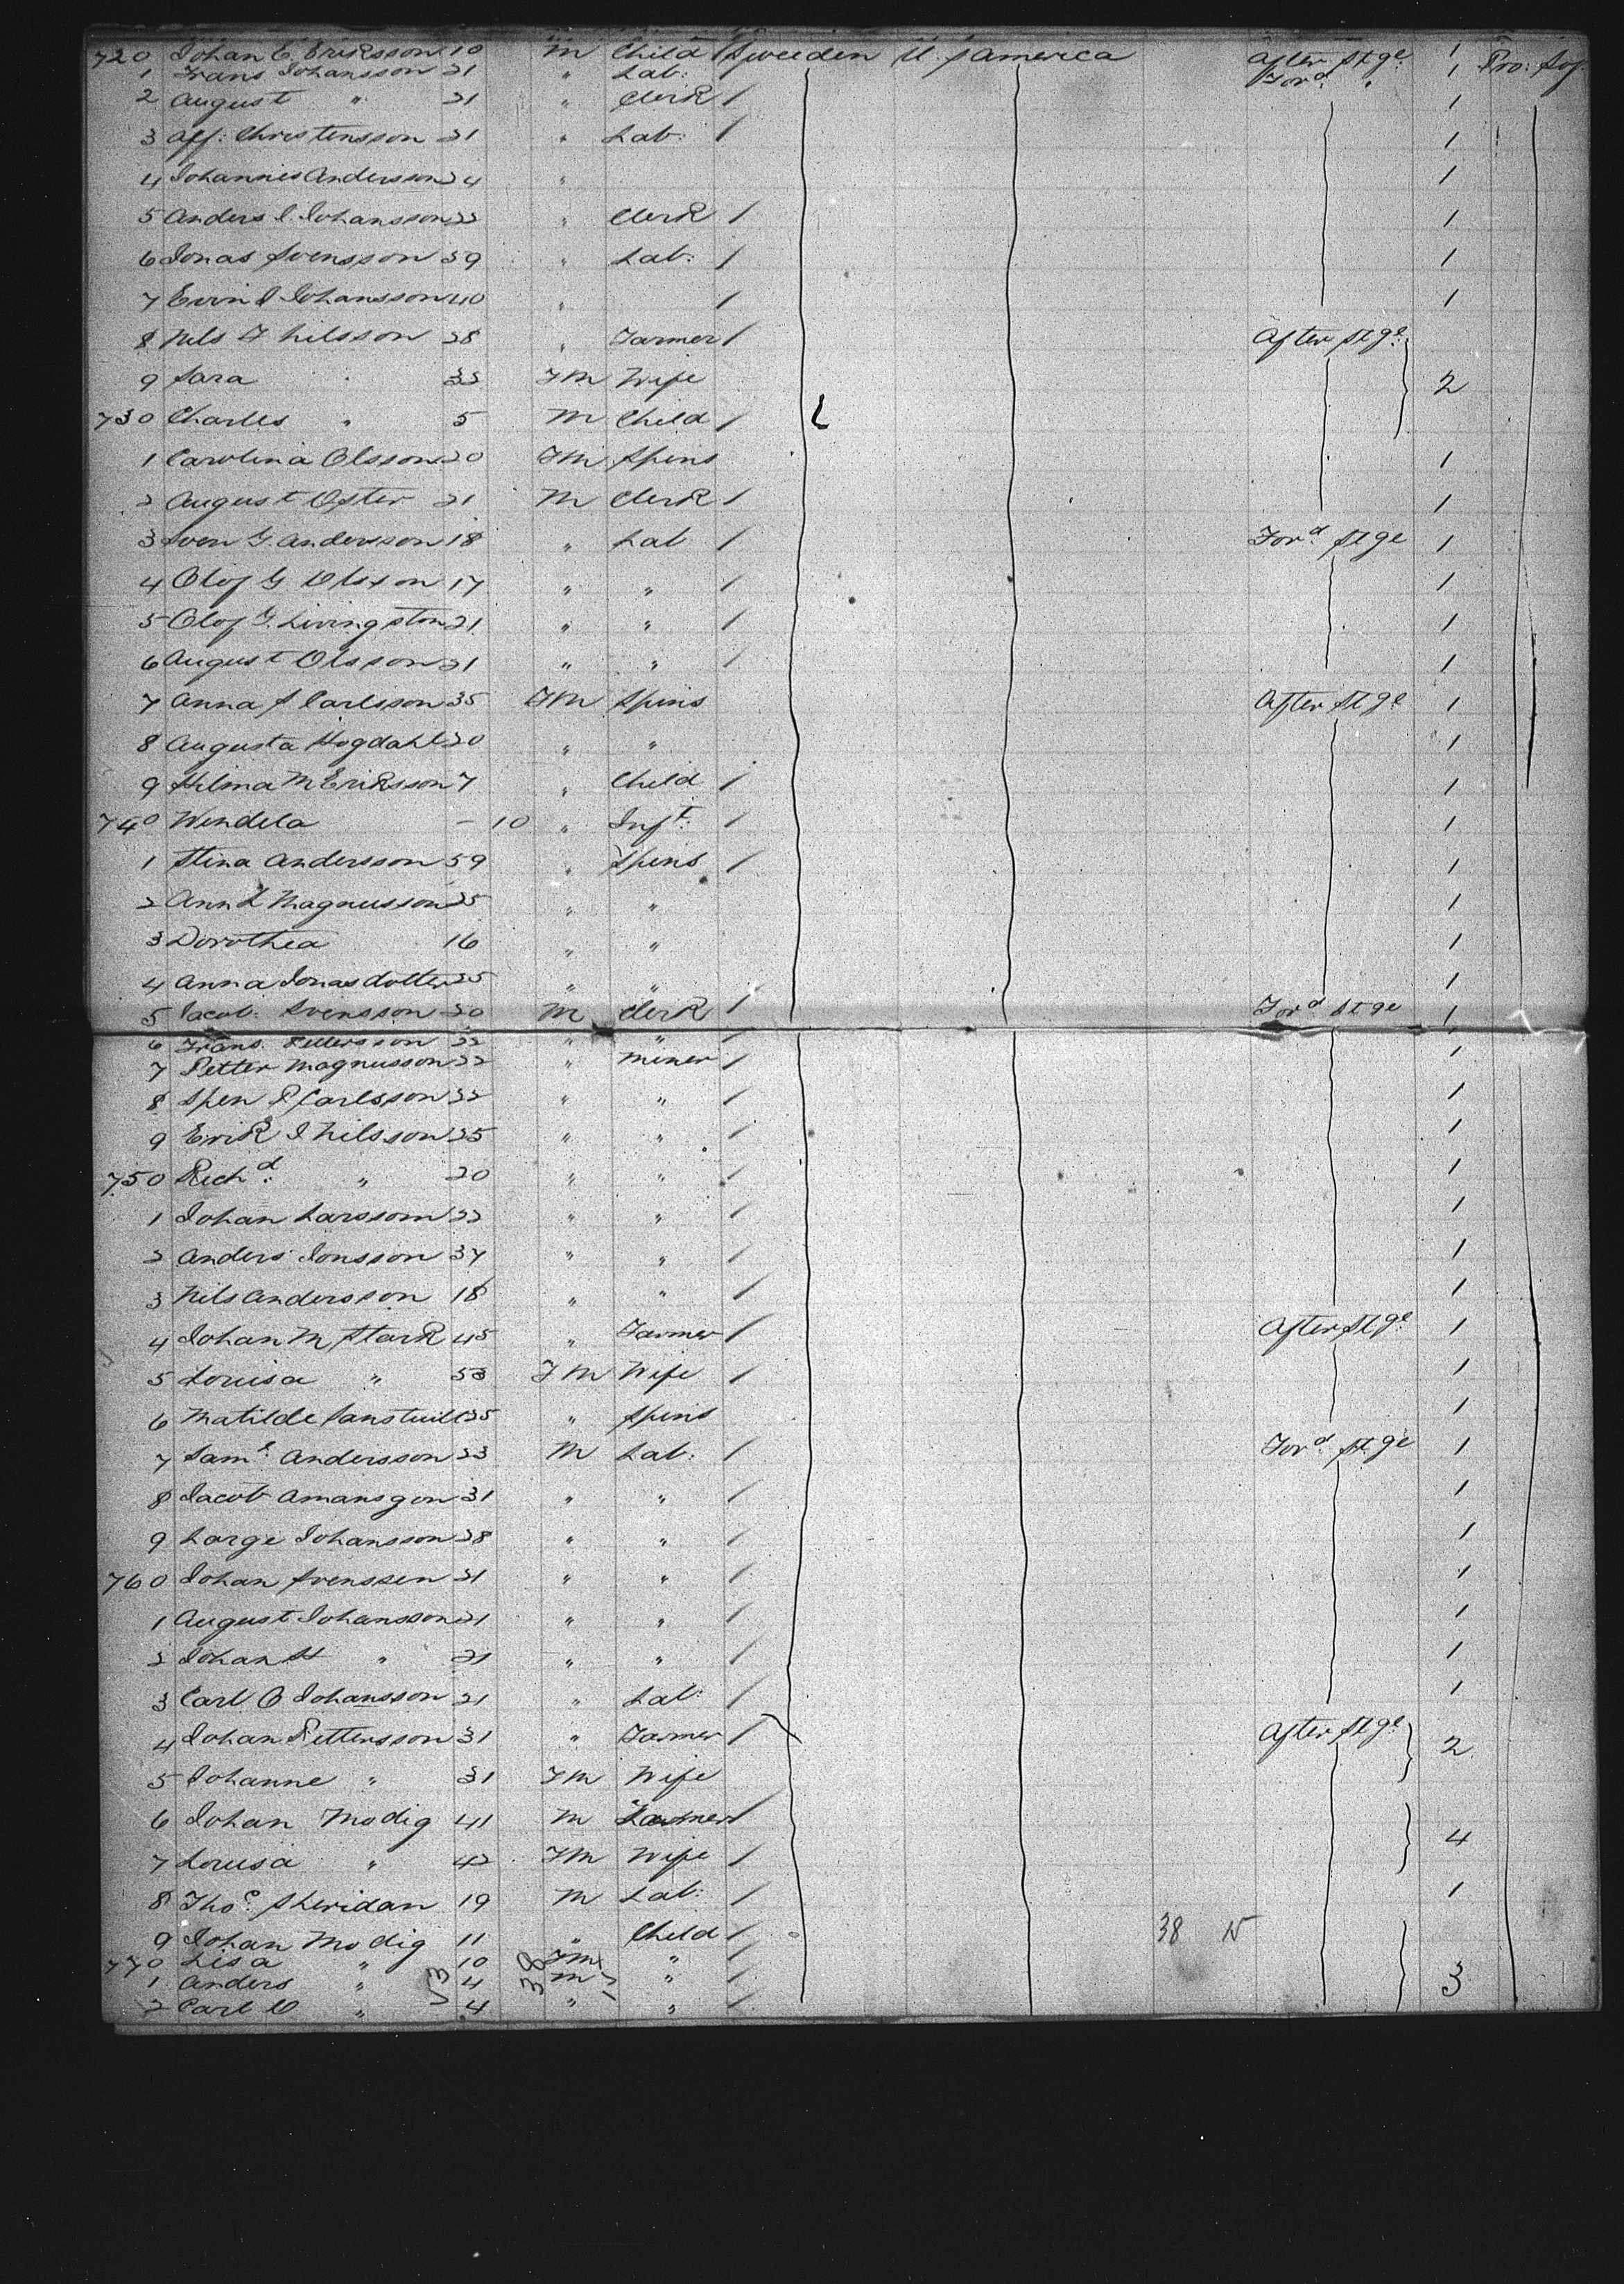 720 Johan E. Eriksson 10 M Child Sweeden U. S America After Stge 1 Pro: Sog.
1 Frans Johansson 21 " Lab: For^d " 1
2 August " 21 " Clerk / 1
3 Aff: Christensson 21 " Lab: / 1
4 Johannes Andersson 24 " 1
5 Anders J. Johansson 22 " Clerk / 1
6 Jonas Svensson 39 " Lab: / 1
7 Johansson 40 " / 1
8 Nils F Nilsson 28 " Farmer / After Stge
9 Sara " 32 FM Wife 2
730 Charles " 5 M Child /
1 Carolina Olsson 20 FM Spins 1
2 August Oster 21 M Clerk / 1
3 Sven G. Andersson 18 " Lab / For^d Stge 1
4 Olof G Olsson 17 " " / 1
5 Olof G. Livingston 21 " " / 1
6 August Olsson 21 " " / 1
7 Anna S Carlsson 35 FM Spins After Stge 1
8 Augusta Hogdahl 20 " " 1
9 Hilma M Eriksson 7 " Child / 1
740 Wendela – 10 " Inft: / 1
1 Stina Andersson 59 " Spins / 1
2 Ann L Magnusson 25 " " 1
3 Dorothea 16 " " 1
4 Anna Jonasdotter 25 " " 1
5 Jacob. Svensson 20 M Clerk / For^d Stge 1
6 Frans. Pettersson 22 " " / 1
7 Petter Magnusson 22 " Miner / 1
8 Spen P Carlsson 22 " " / 1
9 Erik J Nilsson 25 " " / 1
750 Rich^d: " 20 " " / 1
1 Johan Larssom 22 " " / 1
2 Anders Jonsson 37 " " / 1
3 Nils Andersson 18 " " / 1
4 Johan M Stark 45 " Farmer / After Stge 1
5 Louisa " 53 FM Wife / 1
6 Matilde 25 " Spins 1
7 Sam^l Andersson 23 M Lab: / For^d Stge 1
8 Jacob Amansgon 31 " " / 1
9 Large Johansson 28 " " / 1
760 Johan Svenssen 21 " " / 1
1 August Johansson 21 " " / 1
2 Johan H " 21 " " / 1
3 Carl O Johansson 21 " Lab: / 1
4 Johan Pettersson 31 " Farmer / After Stge 2
5 Johanne " 31 FM Wife
6 Johan Modig 41 M Farmer / 4
7 Lousa " 42 FM Wife /
8 Tho^s. Sheridan 19 M Lab: / 1
9 Johan Modig 11 " Child / 38 15
770 Lisa " 10 FM " /
1 Anders " 4 M " / 3
2 Carl O " 4 " " /